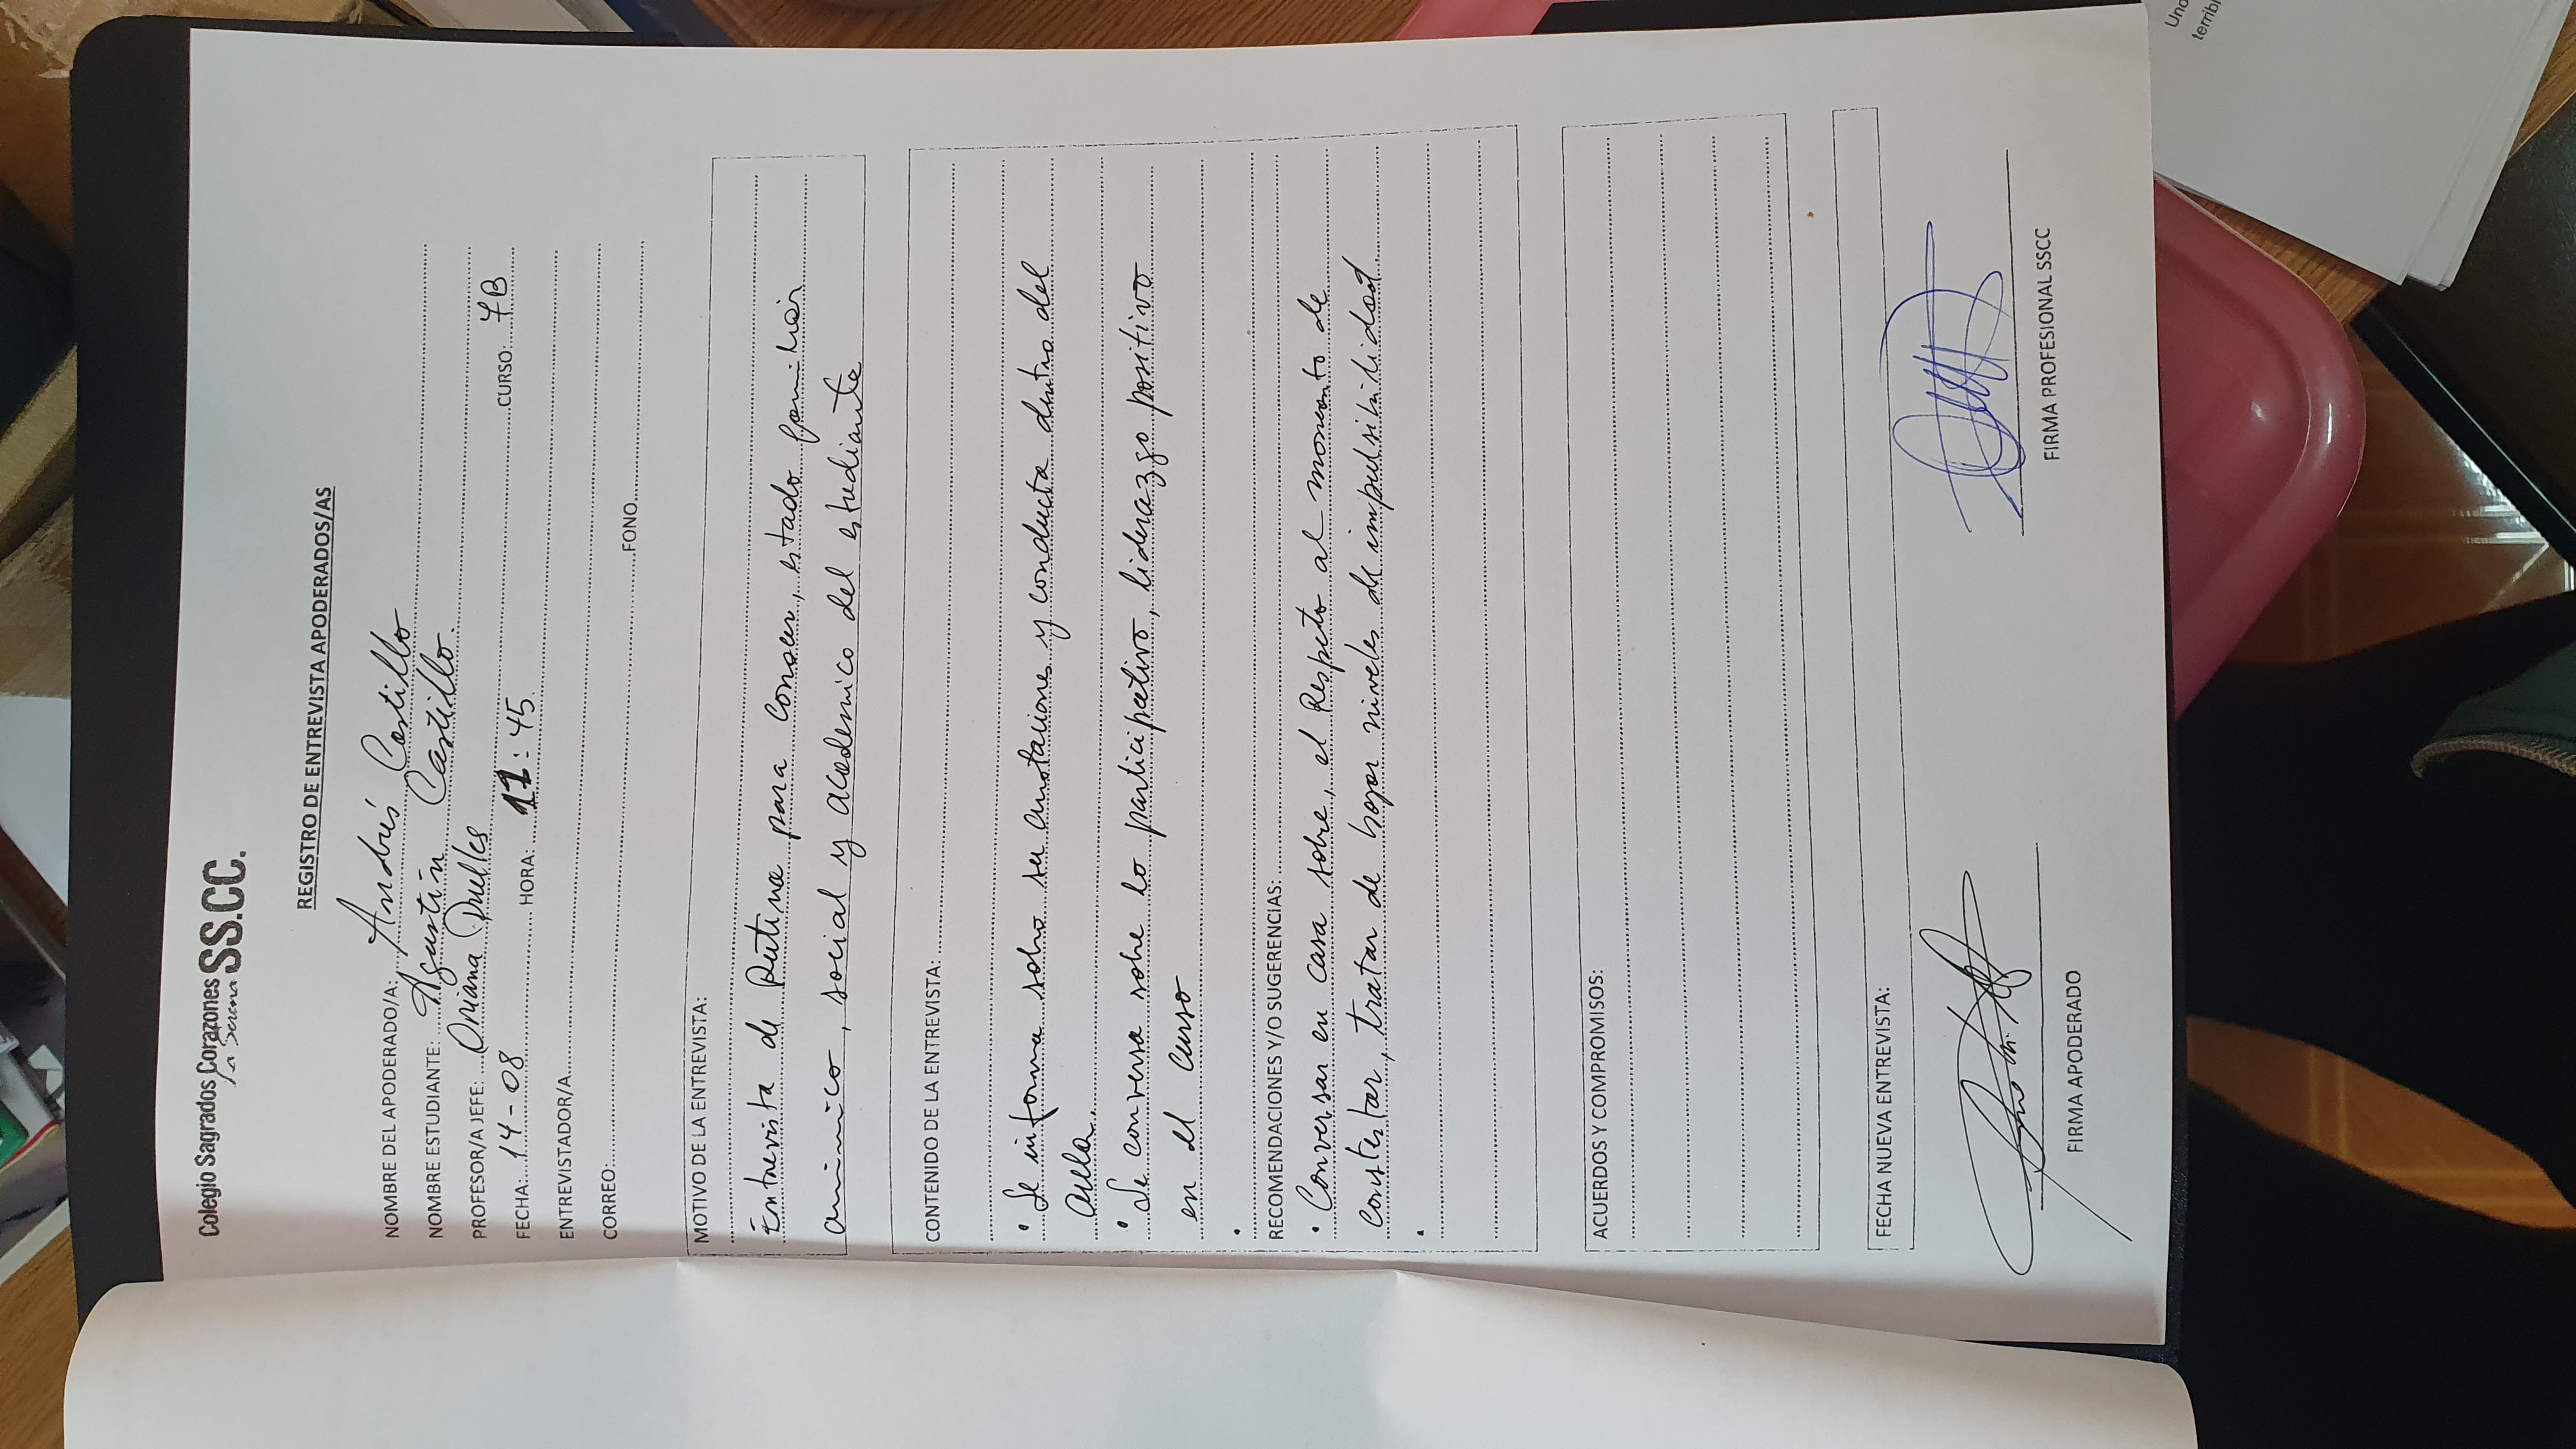 Colegio Sagrados Corazones SS.CC.
La Serena
REGISTRO DE ENTREVISTA APODERADOS/AS
NOMBRE DEL APODERADO/A: Andrés Castillo
NOMBRE ESTUDIANTE: Agustín Castillo.
PROFESOR/A JEFE: Oriana
FECHA: 14-08 HORA: 11:45 CURSO: 7B
ENTREVISTADOR/A
CORREO: FONO
MOTIVO DE LA ENTREVISTA:
Entrevista de Rutina para Conocer, estado familiar
animico, social y academico del estudiante
CONTENIDO DE LA ENTREVISTA:
• Se informa sobre su anotaciones y conducta dentro del
aula.
• Se conversa sobre lo participativo, liderazgo positivo
en el curso
•
RECOMENDACIONES Y/O SUGERENCIAS:
• Conversar en casa sobre, el Respeto al momento de
contestar, tratar de bajar niveles de impulsibilidad
•
ACUERDOS Y COMPROMISOS:
FECHA NUEVA ENTREVISTA:
FIRMA APODERADO FIRMA PROFESIONAL SSCC
Uno
terribl